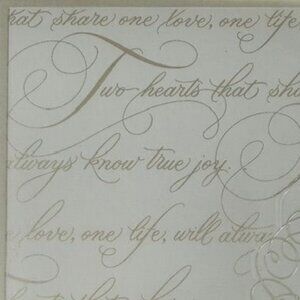 hat share one love, one life
Two hearts that sha
always know true joy.
e love, one life, will alwa